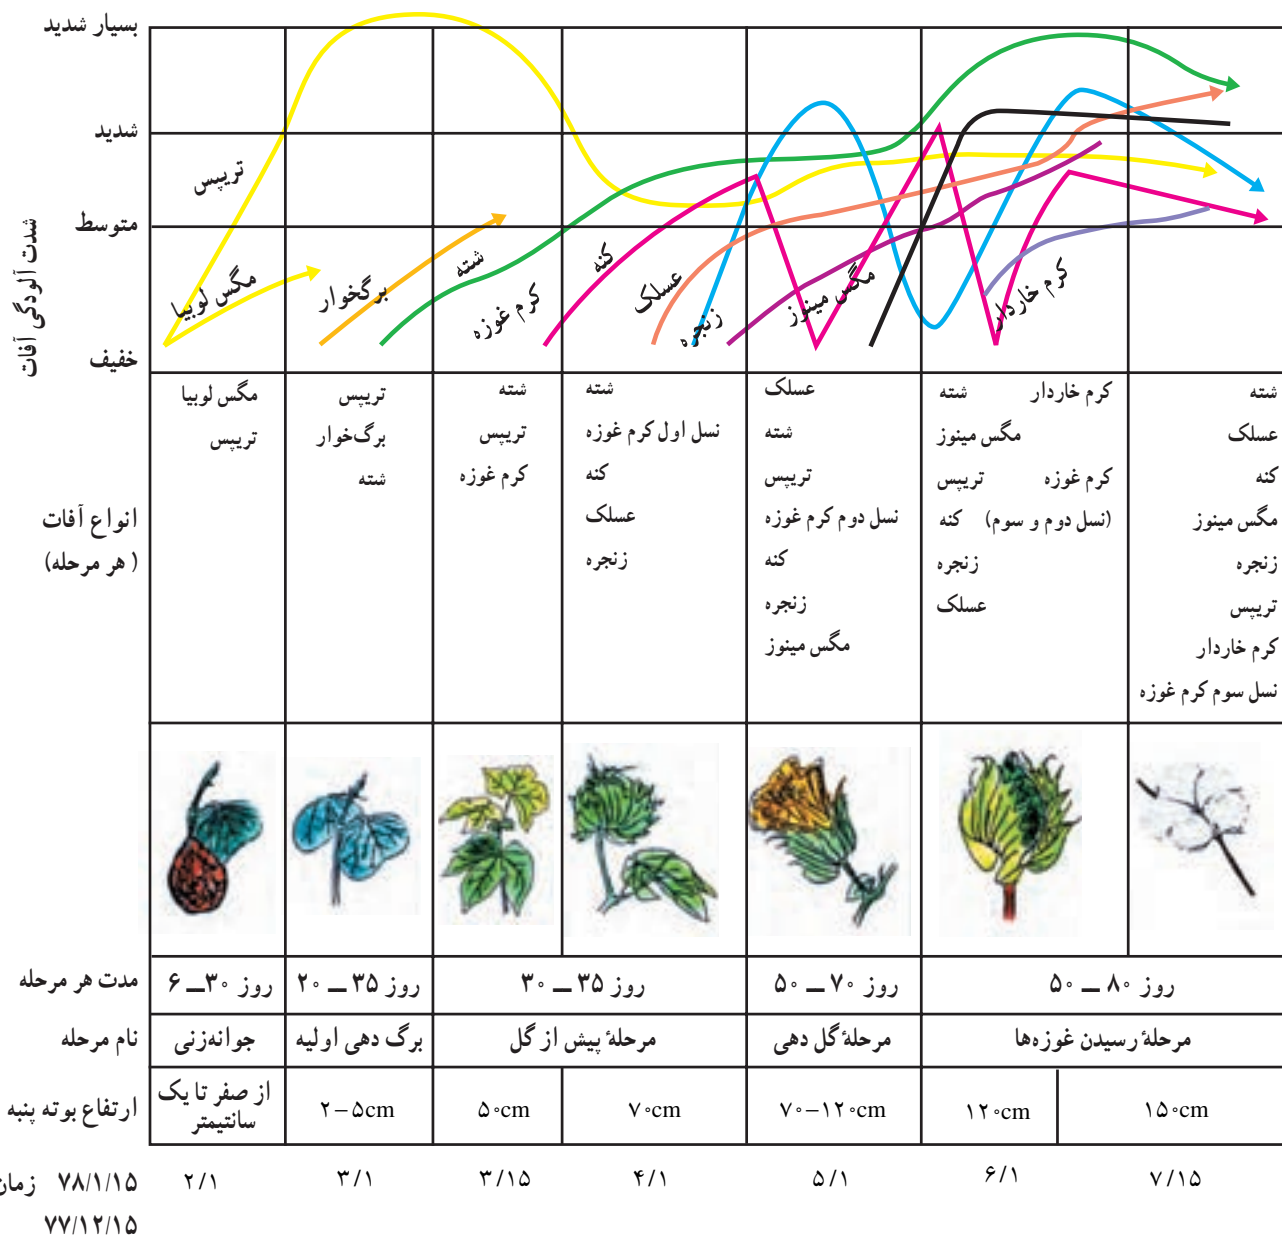 شدت آلودگی آفات
بسیار شدید
شدید
متوسط
خفیف
تریپس
مگس لوبیا
برگخوار
شته
کرم غوزه
کنه
عسلک
زنجره
مگس مینوز
کرم خاردار
انواع آفات
(هر مرحله)
مگس لوبیا
تریپس
تریپس
برگ‌خوار
شته
شته
تریپس
کرم غوزه
شته
نسل اول کرم غوزه
کنه
عسلک
زنجره
عسلک
شته
تریپس
نسل دوم کرم غوزه
کنه
زنجره
مگس مینوز
کرم خاردار شته
مگس مینوز
کرم غوزه تریپس
(نسل دوم و سوم) کنه
زنجره
عسلک
شته
عسلک
کنه
مگس مینوز
زنجره
تریپس
کرم خاردار
نسل سوم کرم غوزه
مدت هر مرحله
روز ۳۰ــ۶
روز ۳۵ ــ ۲۰
روز ۳۵ ــ ۳۰
روز ۷۰ ــ ۵۰
روز ۸۰ ــ ۵۰
نام مرحله
جوانه‌زنی
برگ دهی اولیه
مرحلهٔ پیش از گل
مرحلهٔ گل دهی
مرحلهٔ رسیدن غوزه‌ها
ارتفاع بوته پنبه
از صفر تا یک
سانتیمتر
۲–۵cm
۵۰cm
۷۰cm
۷۰–۱۲۰cm
۱۲۰cm
۱۵۰cm
۷۸/۱/۱۵
۷۷/۱۲/۱۵
۲/۱
۳/۱
۳/۱۵
۴/۱
۵/۱
۶/۱
۷/۱۵